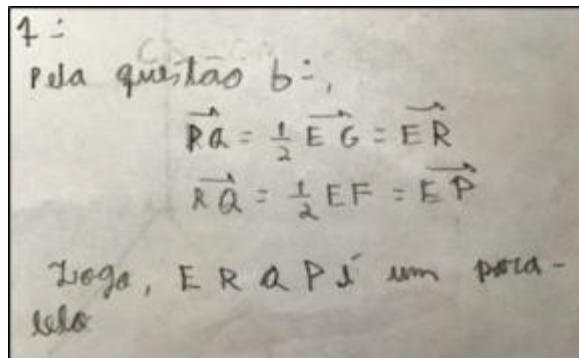 7:
Pela questão 6:,
PQ = 1/2 EG = ER
RQ = 1/2 EF = EP
Logo, E R Q P é um para-
lelo